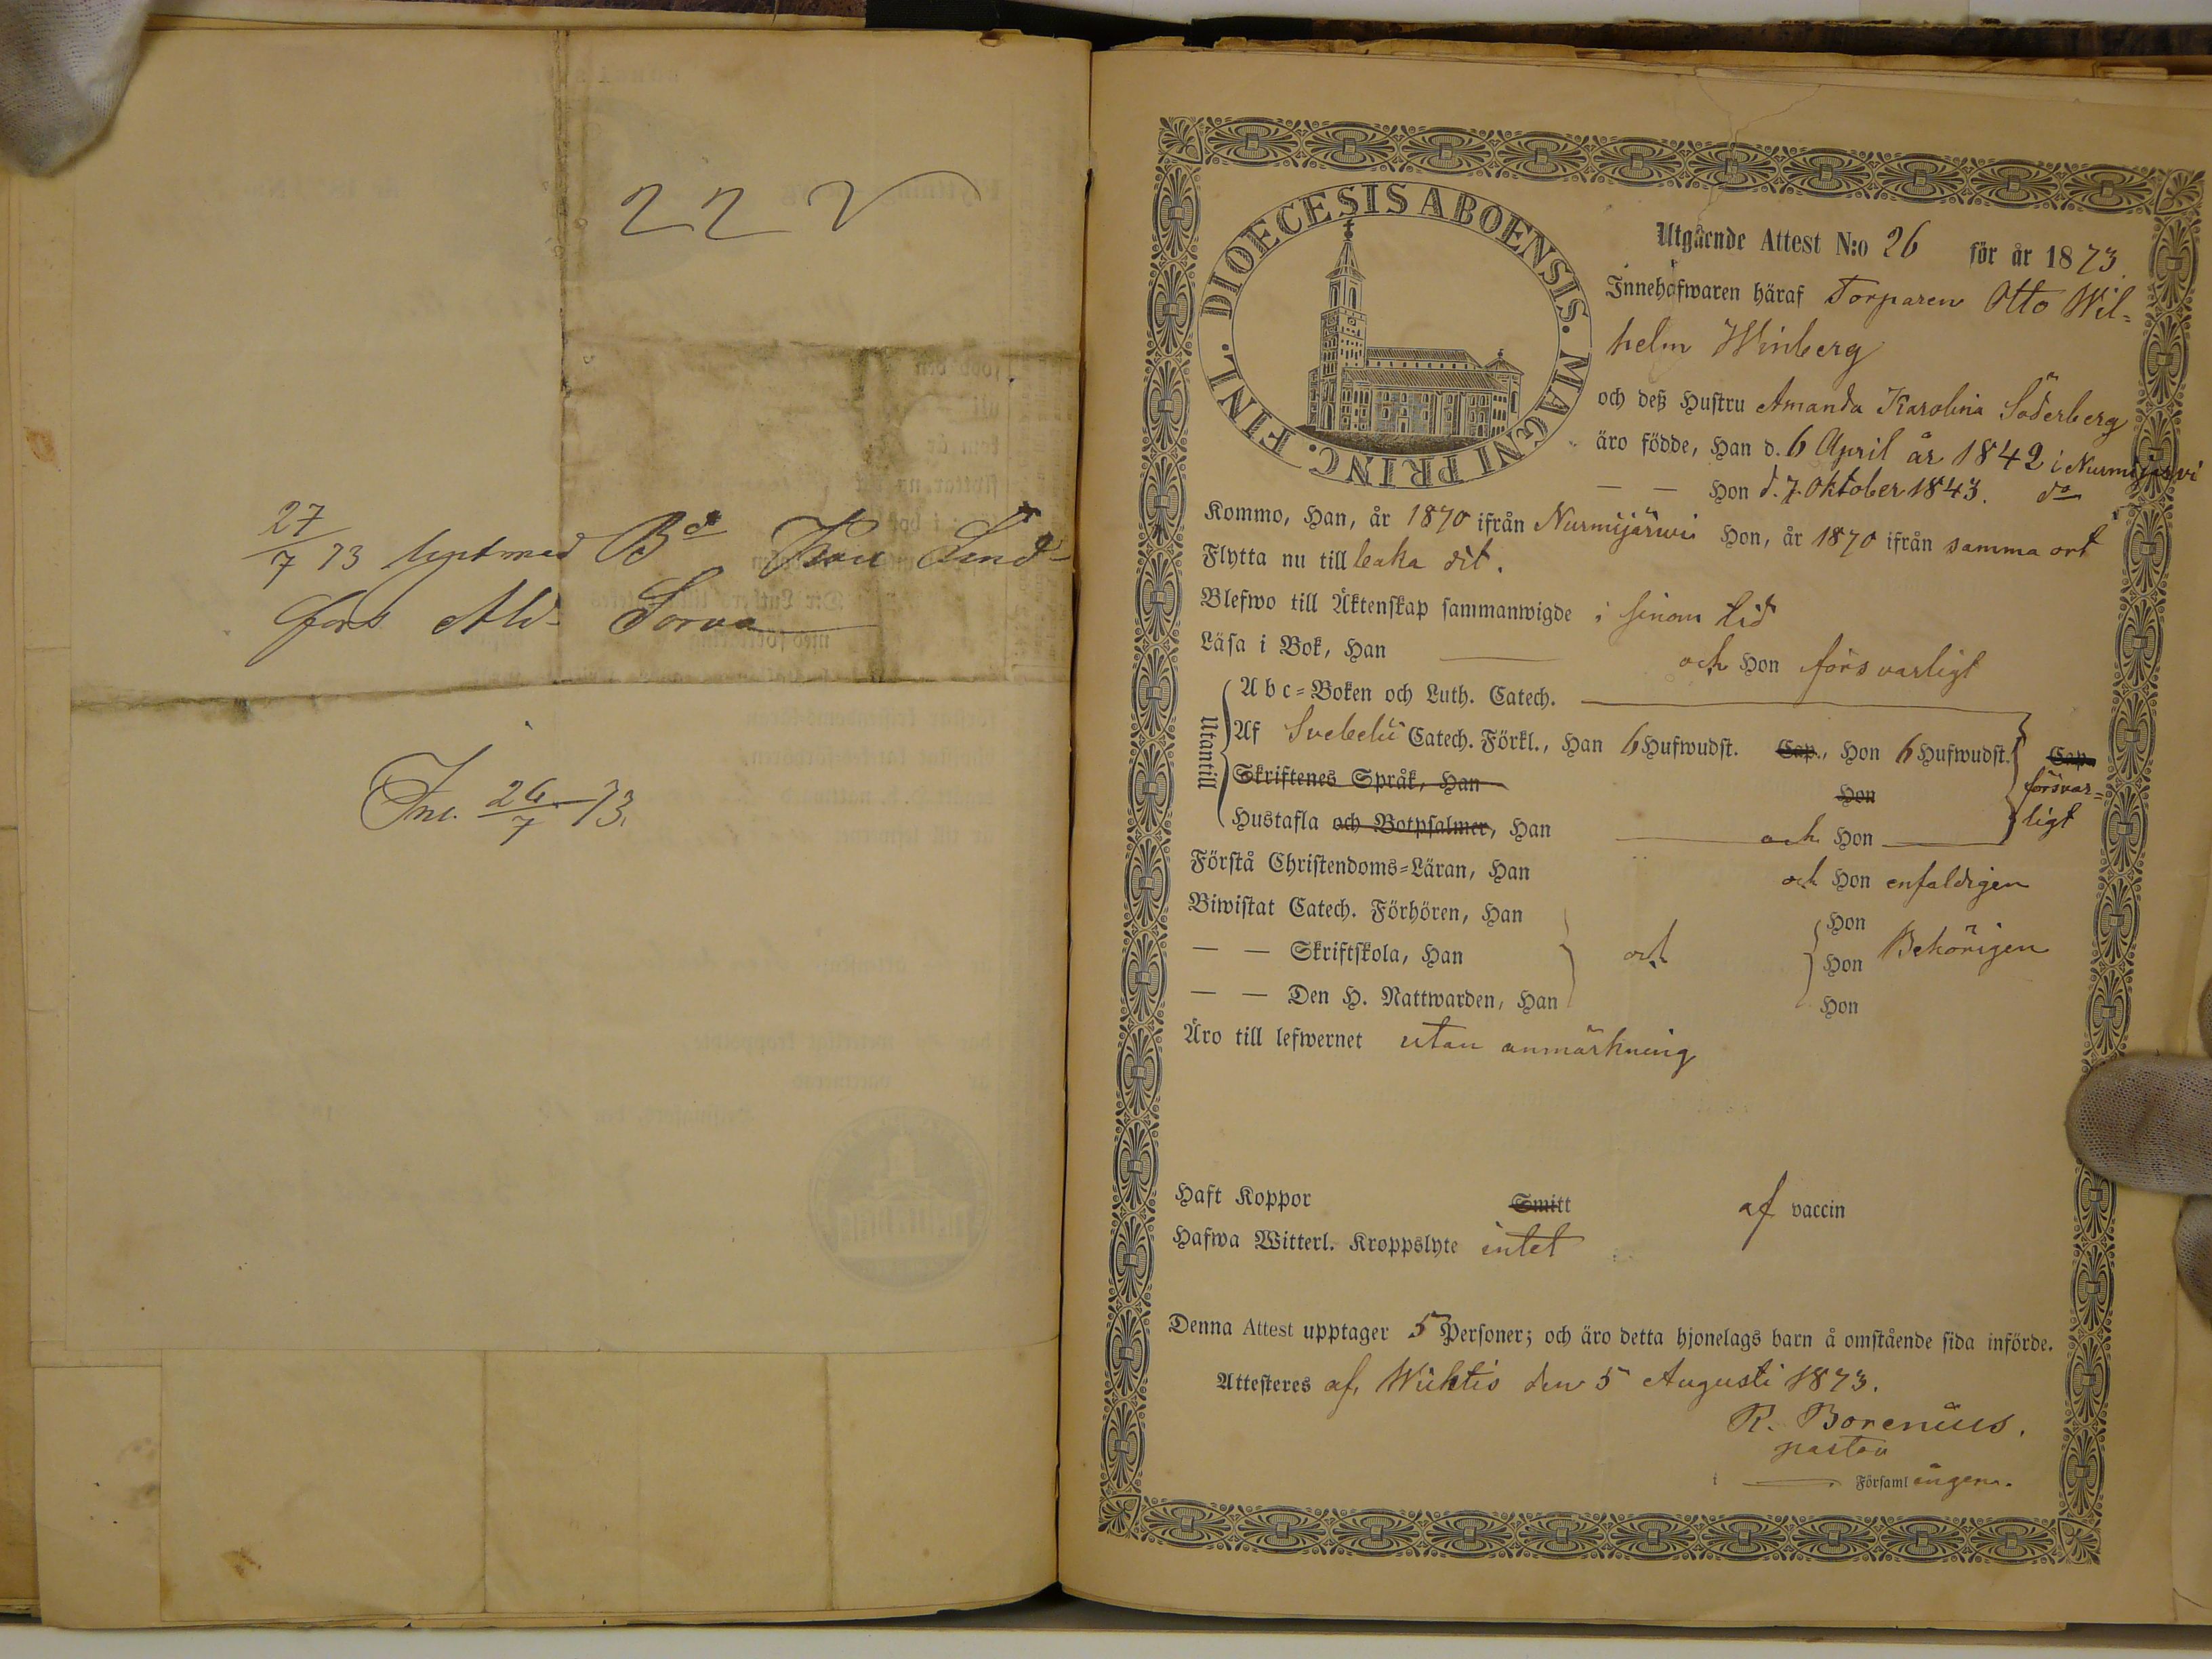 222
27/7 73 lyst med Bd
fors Ald. Sorva
Ink. 26/7 73.
DIOECESIS ABOENSIS. MAGNI PRINC. FINL.
Utgående Attest N:o 26 för år 1873.
Innehafwaren häraf Torparen Otto Wil=
helm Winberg
och deß Hustru Amanda Karolina Söderberg
äro födde, Han d. 6 April år 1842 i Nurmijärvi
— — Hon d. 7. Oktober 1843. do
Kommo, Han, år 1870 ifrån Nurmijärwi Hon, år 1870 ifrån samma ort
Flytta nu till baka dit.
Blefwo till Äktenskap sammanwigde i sinom tid
Läsa i Bok, Han — och Hon försvarligt
Utantill
Abc=Boken och Luth. Catech.
Af Svebelii Catech. Förkl., Han 6 Hufwudst. Cap., Hon 6 Hufwudst. Cap.
Skriftenes Språk, Han Hon försvar=
Hustafla och Botpsalmer, Han — och Hon — ligt
Förstå Christendoms=Läran, Han och Hon enfaldigen
Biwistat Catech. Förhören, Han Hon
— — Skriftskola, Han och Hon Behörigen
— — Den H. Nattwarden, Han Hon
Äro till lefwernet utan anmärkning
Haft Koppor Smitt af vaccin
Hafwa Witterl. Kroppslyte intet
Denna Attest upptager 5 Personer; och äro detta hjonelags barn å omstående sida införde.
Attesteres af, Wichtis den 5 Augusti 1873.
R. Borenius.
pastor
i — Församlingen.